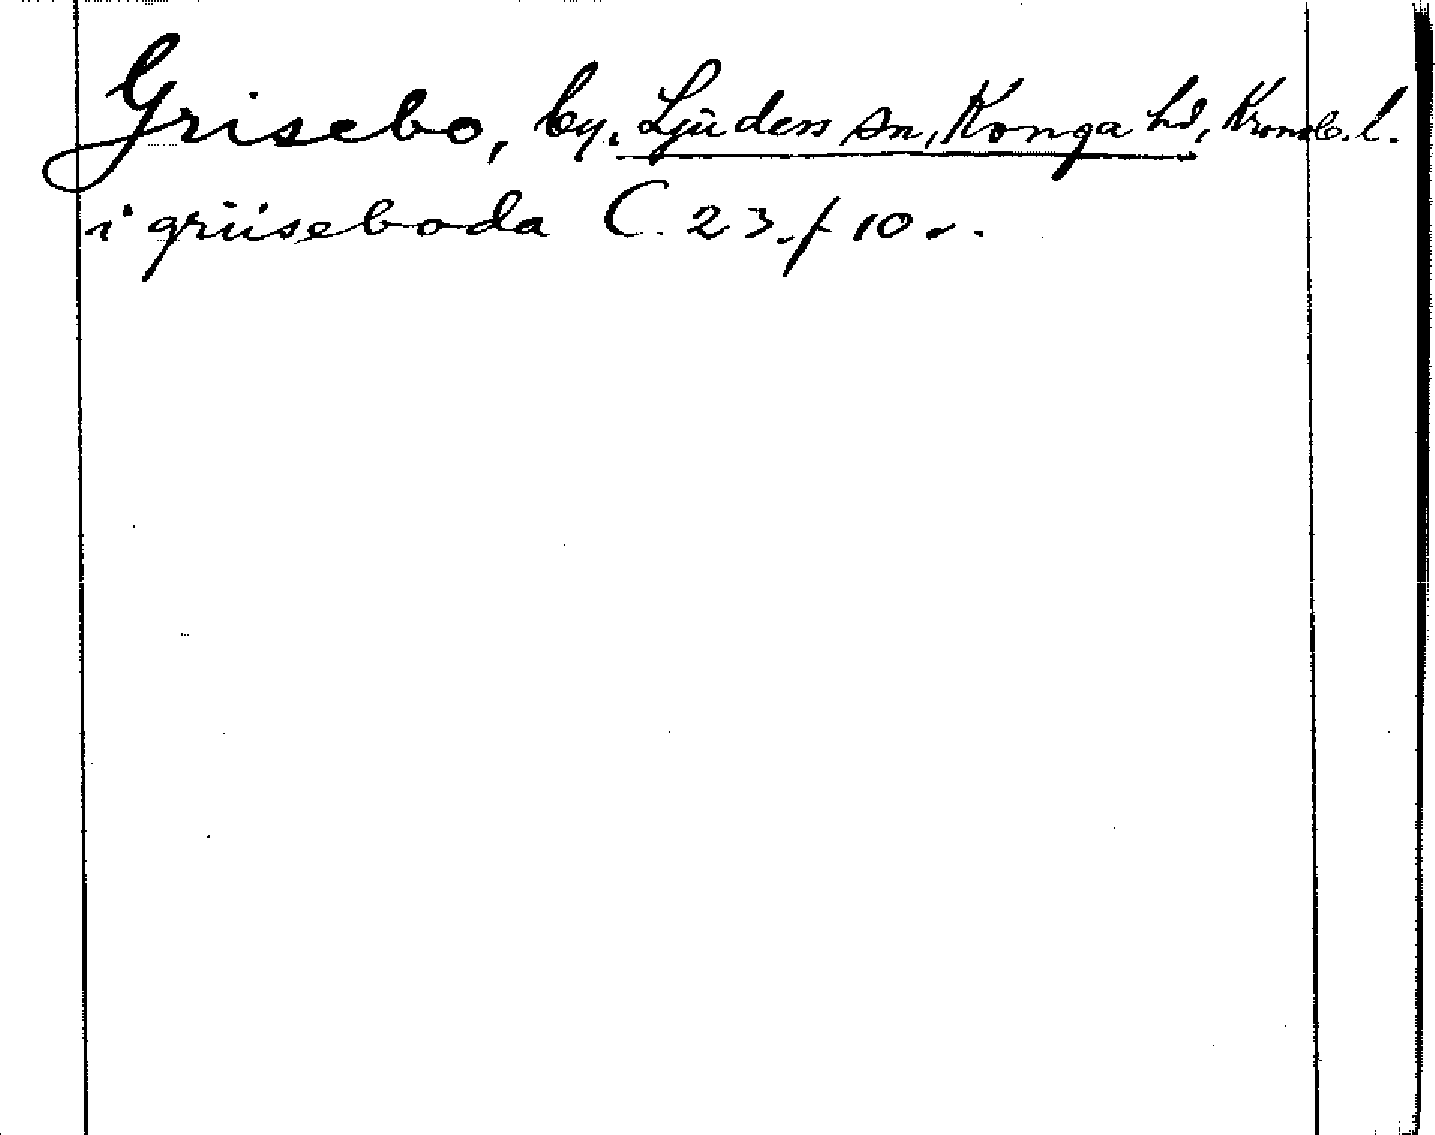 Grisebo, by, Ljuders sn, Konga hd, Kronob. l.
i griiseboda C. 23. f 10 v.